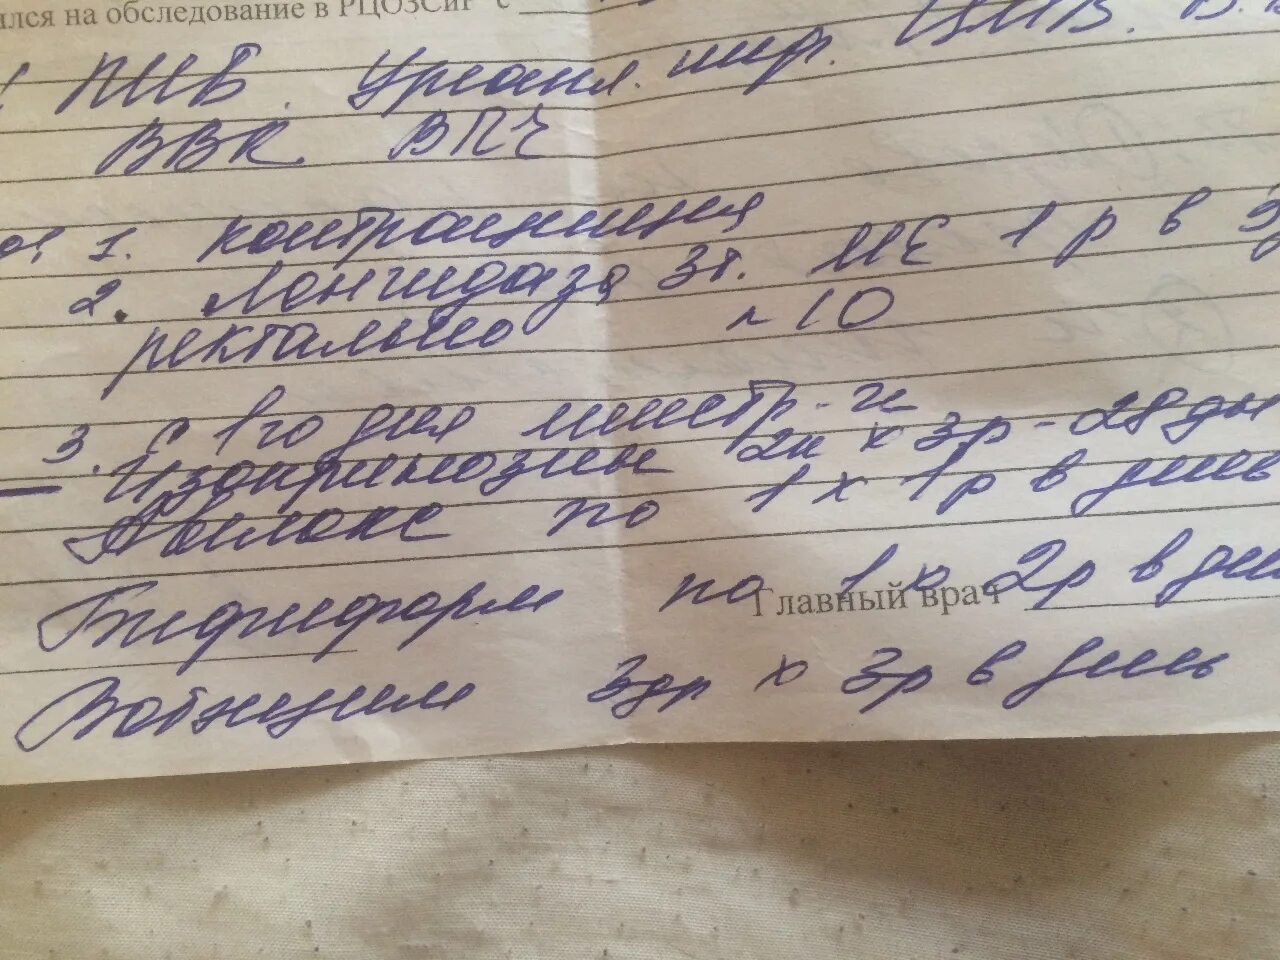 лся на обследование в РЦОЗСиР с
ПМБ. Уреапл. инф. ЦМВ.
ВВК ВПЧ
1. контрацепция
2. Лонгидаза 3т. МЕ 1 р в 3
ректально № 10
3. С 1го дня менстр-и
Изопринозин 2т х 3р - 28 дн
по 1 х 1р в день
Бифиформ по 1 х 2р в день
Главный врач
Вобэнзим 3др х 3р в день